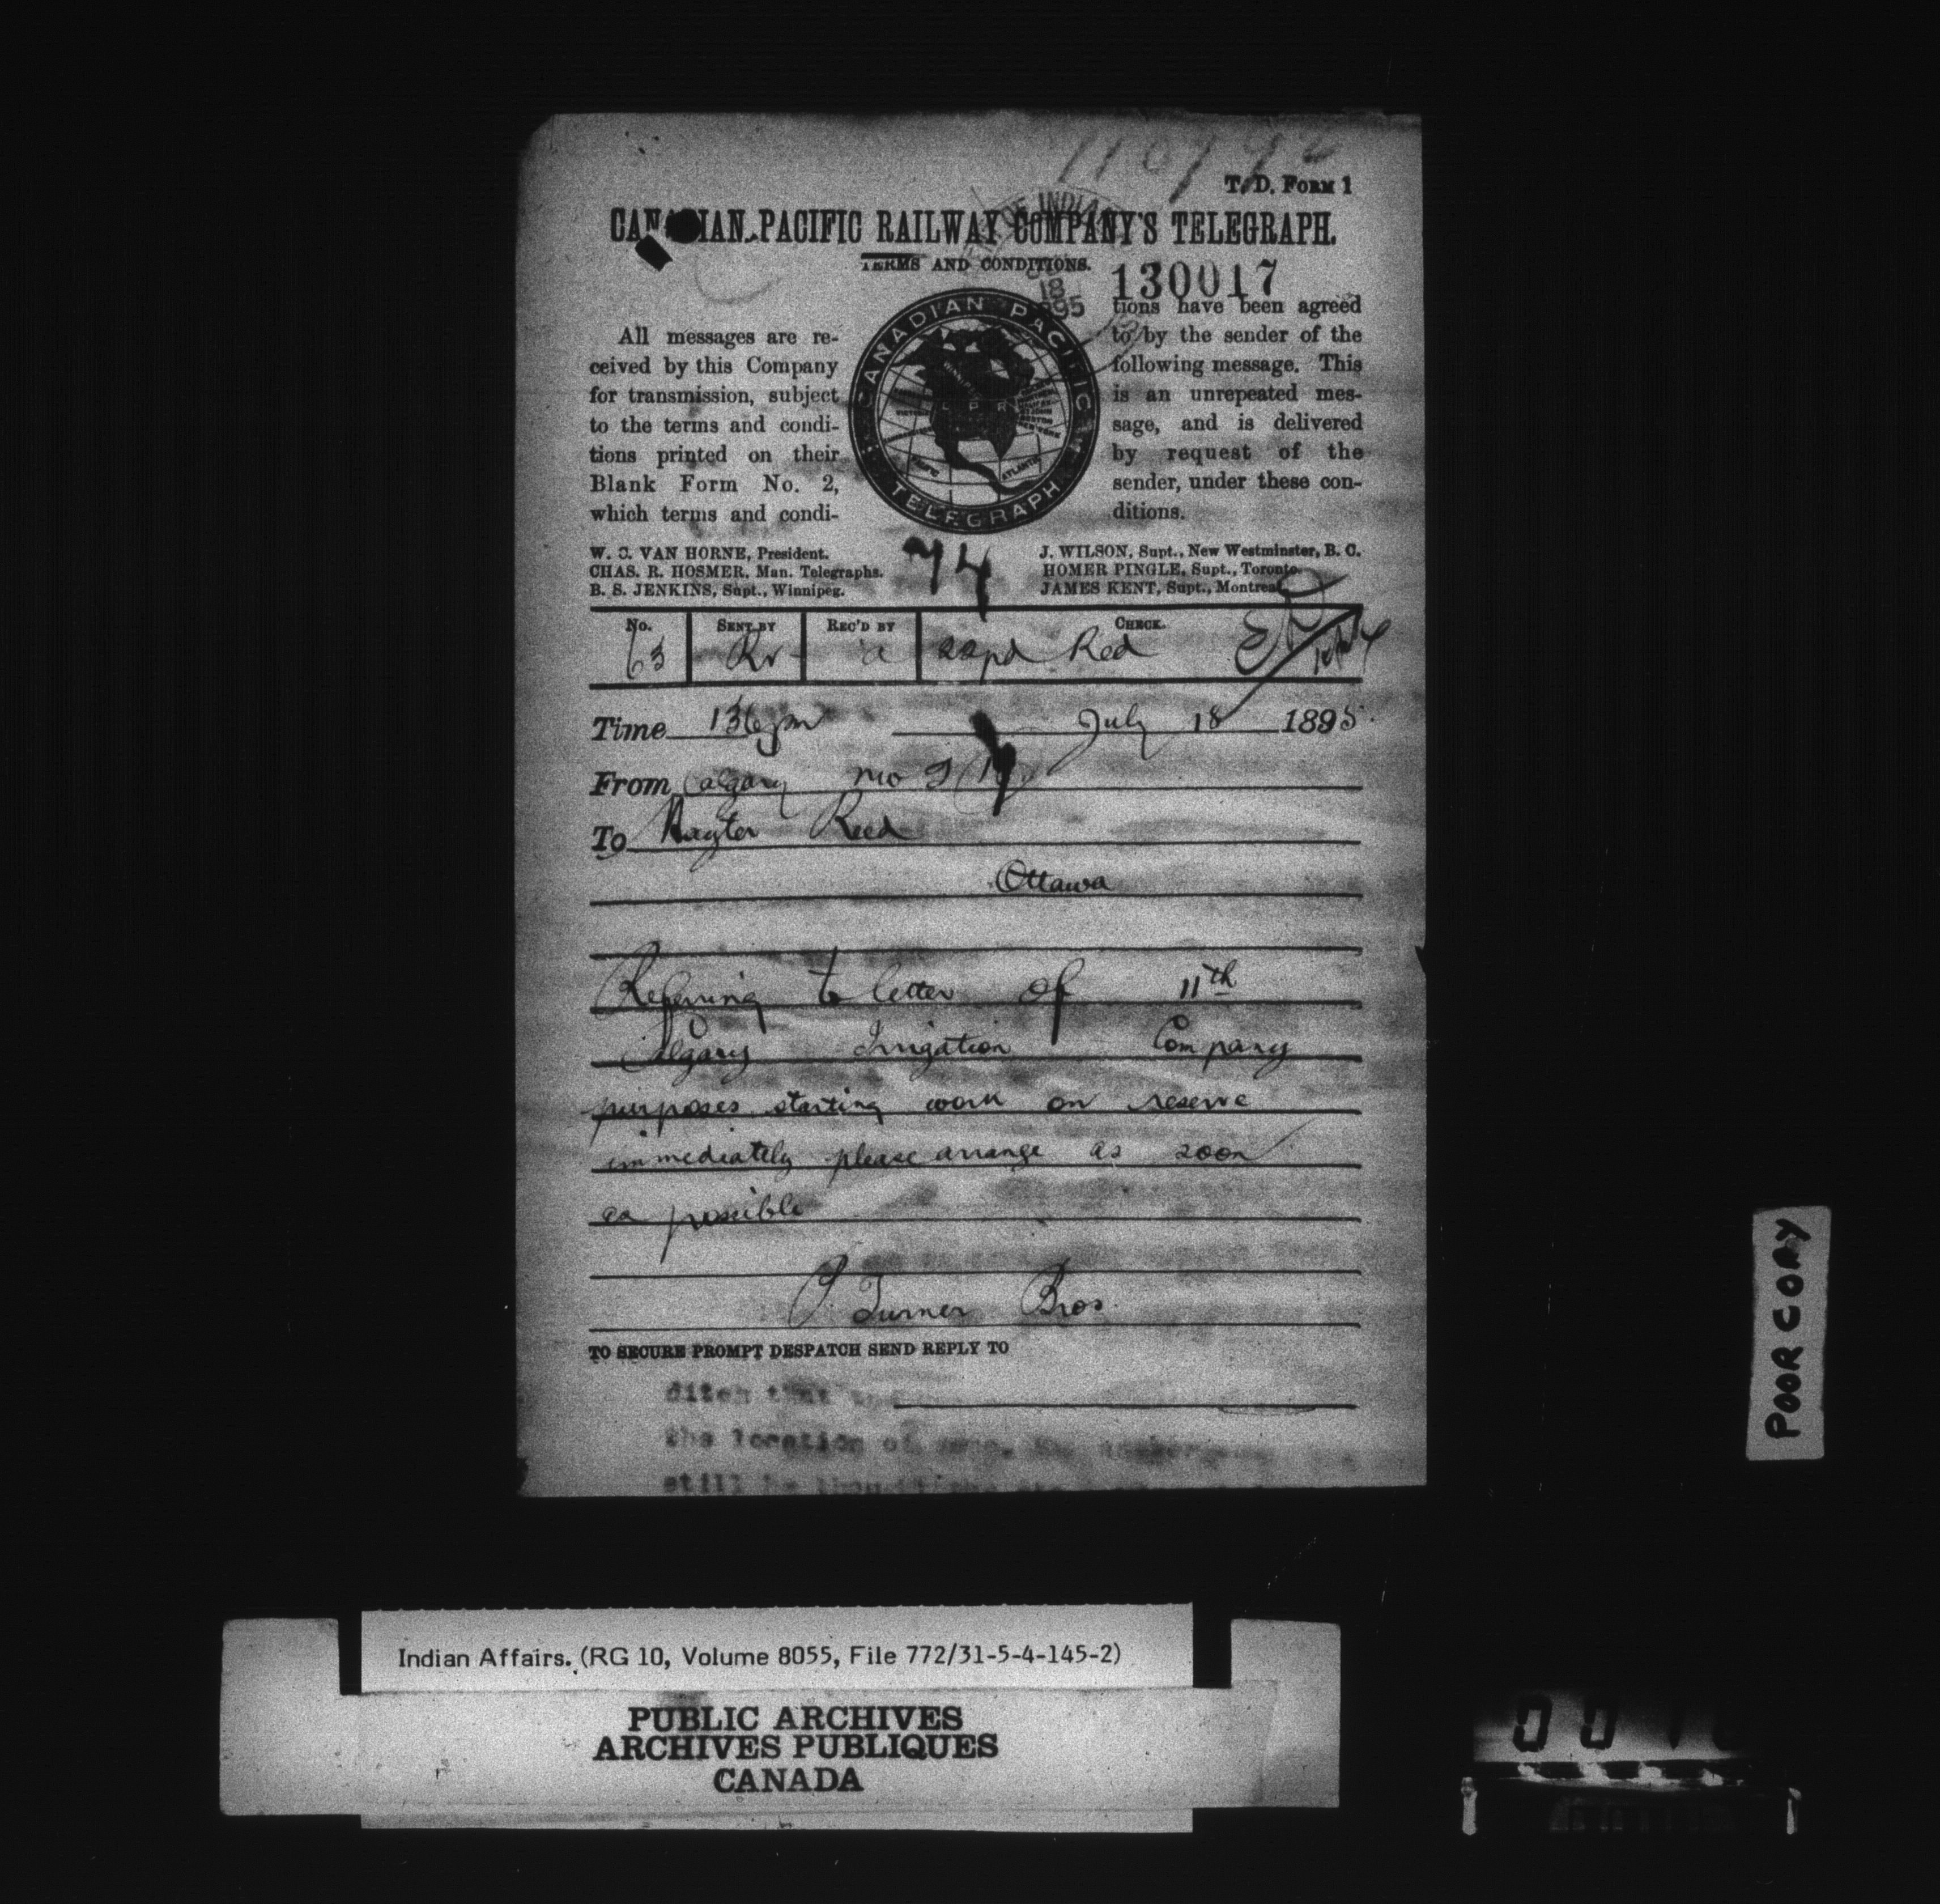 T. D. FORM 1
CANADIAN PACIFIC RAILWAY COMPANY'S TELEGRAPH.
TERMS AND CONDITIONS.
130017
18
95
All messages are re-
ceived by this Company
for transmission, subject
to the terms and condi-
tions printed on their
Blank Form No. 2,
which terms and condi-
CANADIAN PACIFIC
TELEGRAPH
tions have been agreed
to by the sender of the
following message. This
is an unrepeated mes-
sage, and is delivered
by request of the
sender, under these con-
ditions.
W. C. VAN HORNE, President.
CHAS. R. HOSMER, Man. Telegraphs.
B. S. JENKINS, Supt., Winnipeg.
74
J. WILSON, Supt., New Westminster, B. C.
HOMER PINGLE, Supt., Toronto.
JAMES KENT, Supt., Montreal
No. SENT BY REC'D BY CHECK.
63 Rv a 22pd Red
Time 136pm July 18 1895
From Calgary
To Hayter Reed
Ottawa
Referring to letter of 11th
Calgary Irrigation Company
purposes starting work on reserve
immediately please arrange as soon
as possible
P Turner Bros
TO SECURE PROMPT DESPATCH SEND REPLY TO
ditch that
the location of
still be
POOR COPY
Indian Affairs. (RG 10, Volume 8055, File 772/31-5-4-145-2)
PUBLIC ARCHIVES
ARCHIVES PUBLIQUES
CANADA